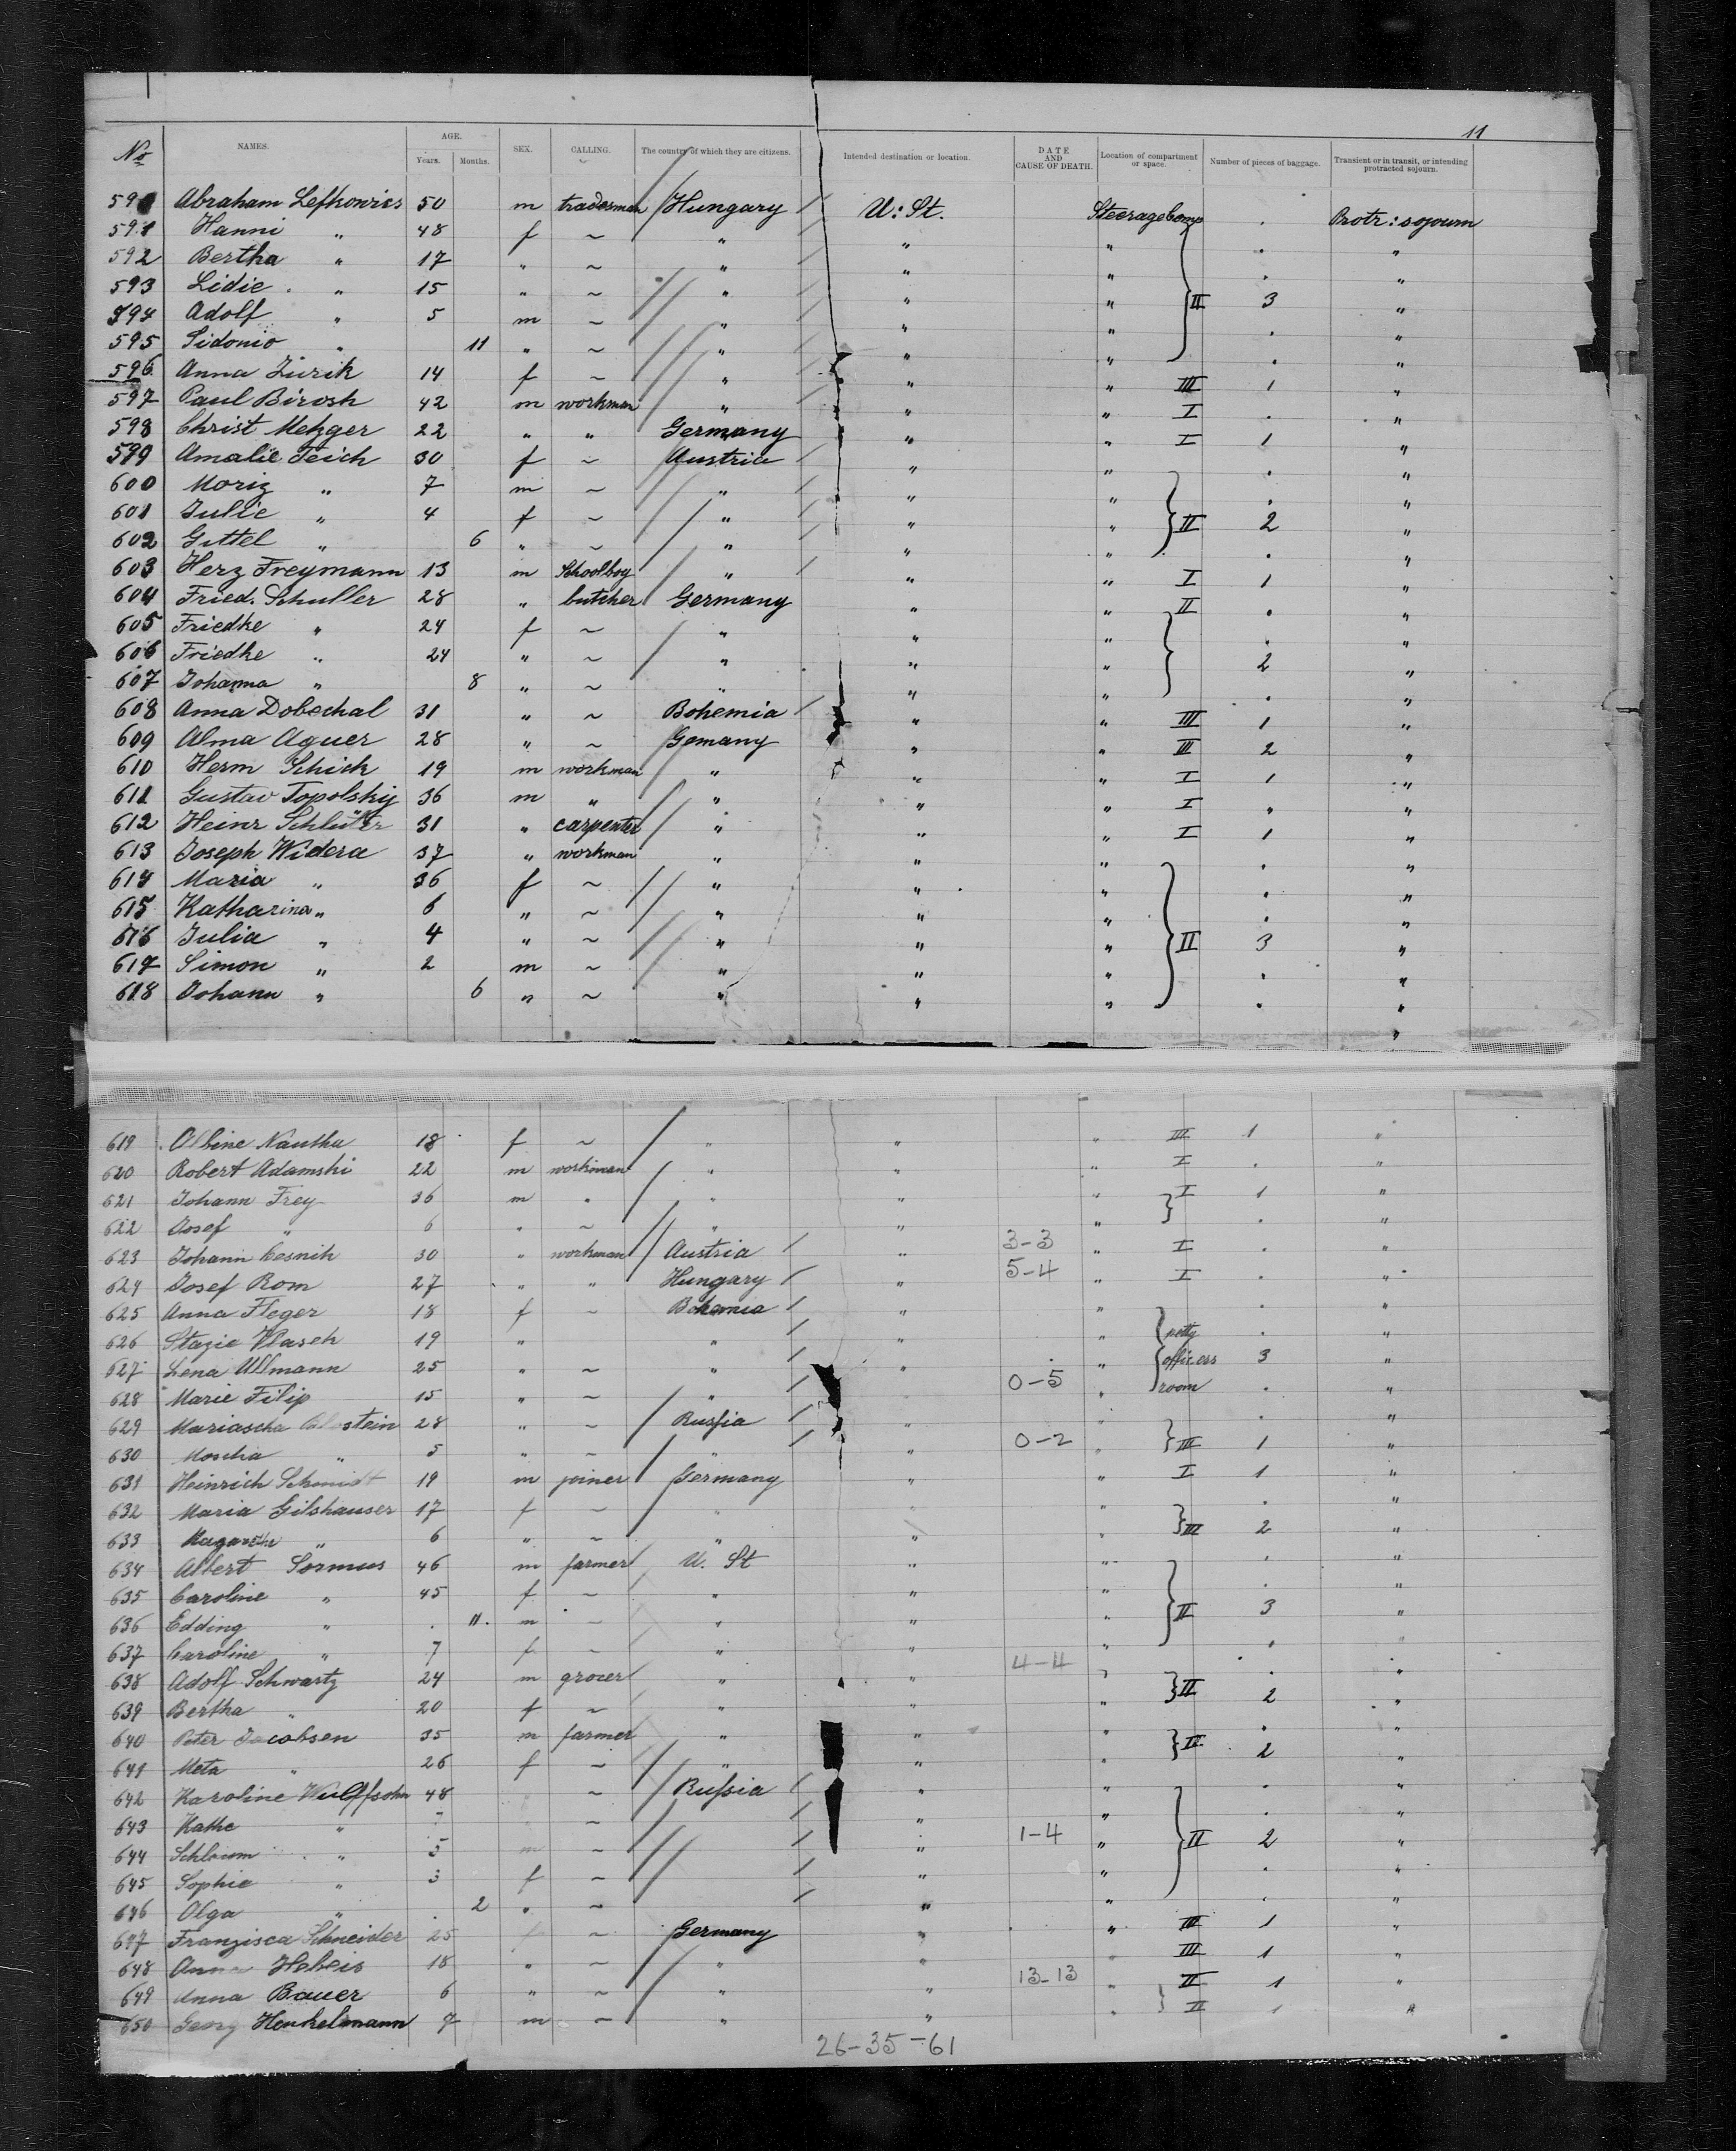 11
No NAMES. AGE. Years. Months. SEX. CALLING. The country of which they are citizens. Intended destination or location. DATE AND CAUSE OF DEATH. Location of compartment or space. Number of pieces of baggage. Transient or in transit, or intending protracted sojourn.
590 Abraham Lefkowics 50 m tradesman Hungary U: St. Steerage Protr: sojourn
591 Hanni " 48 f ~ " " " . "
592 Bertha " 17 " ~ " " " . "
593 Lidie " 15 " ~ " " " . "
594 Adolf " 5 m ~ " " " II 3 "
595 Sidonie " 11 " ~ " " " . "
596 Anna Zurik 14 f ~ " " " III 1 "
597 Paul Birosh 42 m workman " " " I . "
598 Christ Metzger 22 " " Germany " " I 1 "
599 Amalie Teich 30 f ~ Austria " " . "
600 Moriz " 7 m ~ " " " . "
601 Julie " 4 f ~ " " " II 2 "
602 Gittel " 6 " ~ " " " . "
603 Herz Freymann 13 m Schoolboy " " " I 1 "
604 Fried. Schuller 28 " butcher Germany " " II . "
605 Friedke " 24 f ~ " " " . "
606 Friedke " 24 " ~ " " " 2 "
607 Johanna " 8 " ~ " " " . "
608 Anna Dobechal 31 " ~ Bohemia " " III 1 "
609 Alma Aguer 28 " ~ Gemany " " III 2 "
610 Herm Schick 19 m workman " " " I 1 "
611 Gustav Topolskij 36 m " " " " I " "
612 Heinr Schlüter 31 " carpenter " " " I 1 "
613 Joseph Widera 37 " workman " " " . "
614 Maria " 36 f ~ " " " . "
615 Katharina " 6 " ~ " " " . "
616 Julia " 4 " ~ " " " II 3 "
617 Simon " 2 m ~ " " " . "
618 Johann " 6 " ~ " " " . "
619 Albine Nautha 18 f ~ " " " III 1 "
620 Robert Adamski 22 m workman " " " I . "
621 Johann Frey 36 m " " " " I 1 "
622 Josef " 6 " ~ " " " . "
623 Johann Cesnik 30 " workman Austria " 3-3 " I . "
624 Josef Rom 27 " " Hungary " 5-4 " I . "
625 Anna Fleger 18 f ~ Bohemia " " . "
626 Stazie Vlasek 19 " " " " petty . "
627 Lena Ullmann 25 " ~ " " " officers 3 "
628 Marie Filip 15 " ~ " 0-5 " room . "
629 Mariascha 28 " ~ Russia " " . "
630 Moscha " 5 " ~ " " 0-2 " III 1 "
631 Heinrich Schmidt 19 m joiner Germany " " I 1 "
632 Maria Gilshauser 17 f ~ " " " . "
633 " 6 " ~ " " " III 2 "
634 Albert Sormus 46 m farmer U. St " " . "
635 Caroline " 45 f ~ " " " . "
636 Edding " . 11. m ~ " " " II 3 "
637 Caroline " 7 f ~ " " " . "
638 Adolf Schwartz 24 m grocer " " 4-4 " II . "
639 Bertha " 20 f ~ " " " 2 "
640 Peter Jacobsen 35 m farmer " " " II . "
641 Meta " 26 f ~ " " " 2 "
642 Karoline Wulffsohn 48 ~ Russia " " . "
643 Kathe " 7 ~ " " . "
644 " 5 m ~ " 1-4 " II 2 "
645 Sophie " 3 f ~ " " . "
646 Olga " . 2 " ~ " " . "
647 Franzisca Schneider 25 f ~ Germany " " III 1 "
648 Anna Hebeis 18 " ~ " " " III 1 "
649 Anna Bauer 6 " ~ " " 13-13 " II 1 "
650 Georg Henkelmann 7 m ~ " " " II 1 "
26-35-61